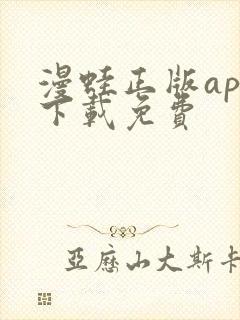 漫蛙正版ap
下載免費
亞歷山大斯卡